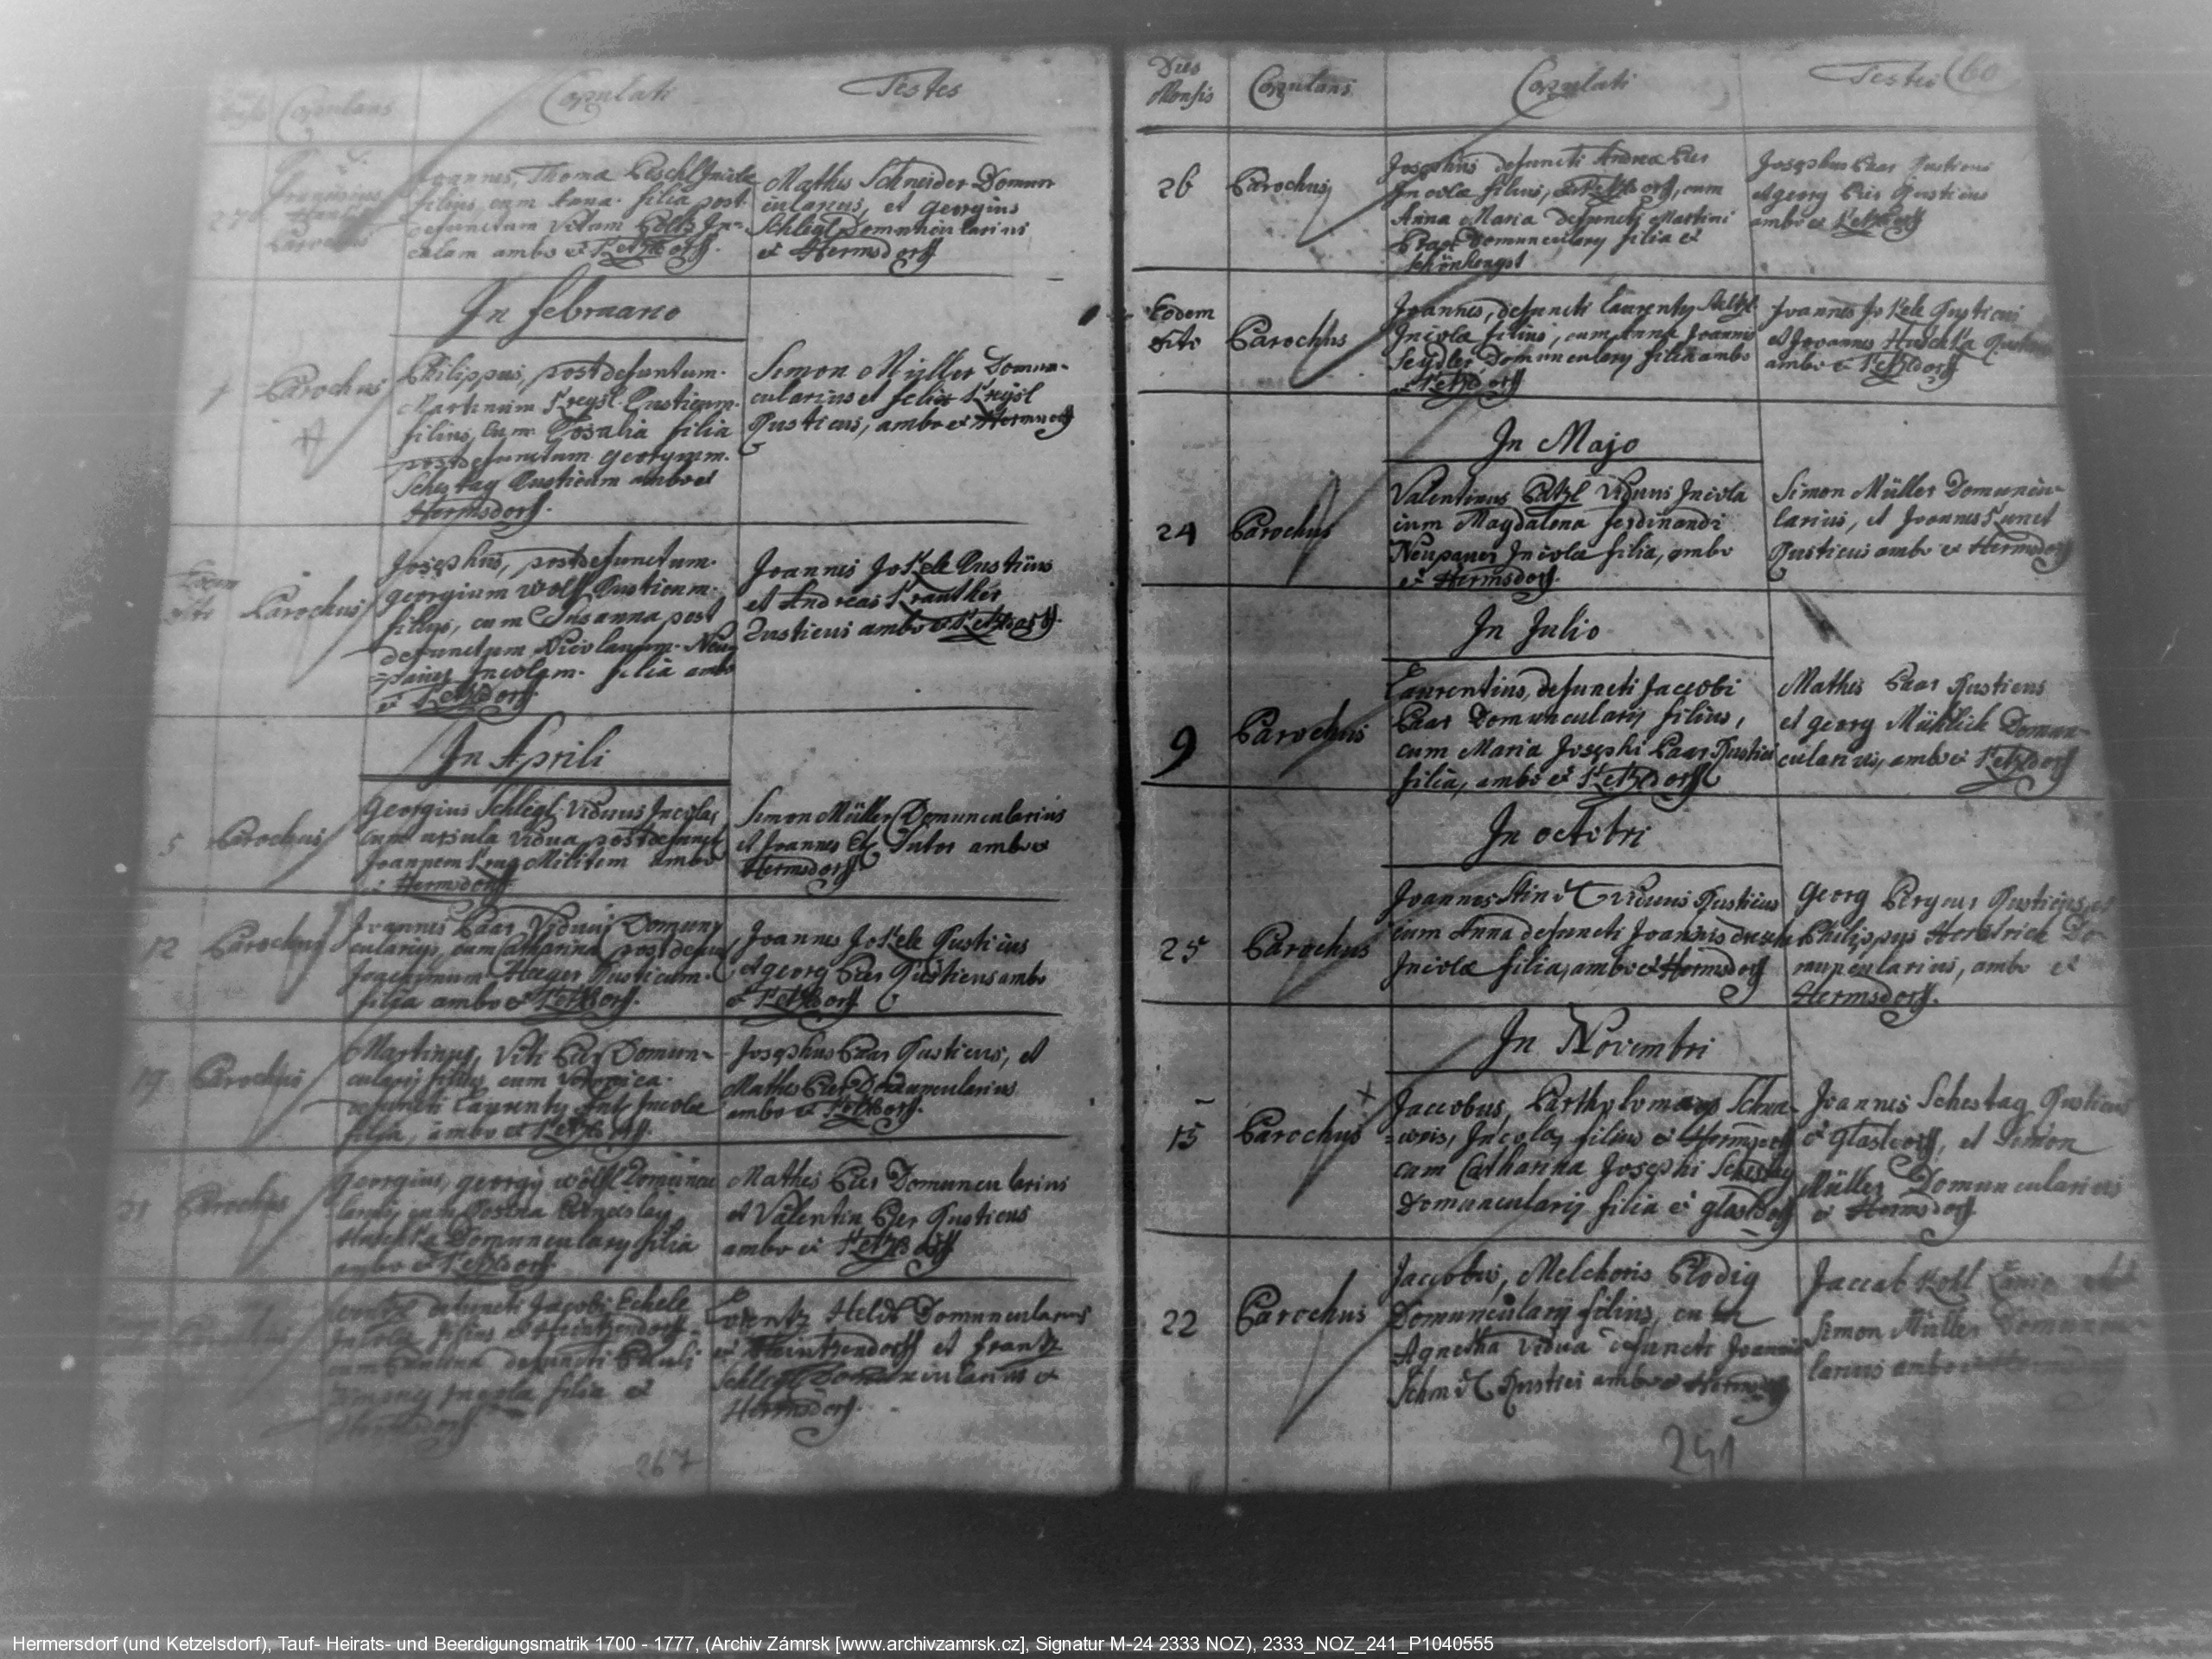 Copulans Copulati Testes
Joannes, Thoma Peschl Incolæ
filius, cum Anna filia post
defunctum Vitum In-
colam ambo ex Ketzldorff.
Mathes Schneider Domun
cularius, et Georgius
Schlegl Domuncularius
ex Hermsdorff
Parochus
In februario
1 Parochus
Philippus, post defuntum
Martinum Kreysl Rusticum
filius, cum Rosalia filia
post defunctum Georgium
Schestag Rusticum ambo ex
Hermsdorff.
Simon Müller Domun-
cularius et felix Kreysl
Rusticus, ambo ex Hermsdorff
Eodem
dito Parochus
Josephus, post defunctum
georgium Wolff Rusticum
filius, cum Susanna post
defunctum Nicolaum Neu
=pauer Incolam filia ambo
ex Ketzldorff.
Joannes Jokele Rusticus
et Andreas Krauther
Rusticus ambo ex Ketzldorff.
In Aprili
5 Parochus
Georgius Schlegl Viduus Incola,
cum Ursula Vidua post defunct
Joannem Krug Militem ambo
ex Hermsdorff
Simon Müller Domuncularius
et Joannes Sutor ambo ex
Hermsdorff
12 Parochus
Joannes Paar Viduus Domun
cularius, cum Catharina post defun
Joachymum Haeger Rusticum
filia ambo ex Ketzldorff.
Joannes Jokele Rusticus
et georg Pier Rusticus ambo
ex Ketzldorff
19 Parochus
Martinus, Viti Pier Domun-
cularij filius cum Veronica
defuncti Laurenty Incolæ
filia, ambo ex Ketzldorff.
Josephus Paar Rusticus, et
Mathes Pier Domuncularius
ambo ex Ketzldorff.
21 Parochus
Georgius, georgij Wölfl Domuncu
larij cum Rosina
Huschka Domuncularij filia
ambo ex Ketzldorff.
Mathes Pier Domuncularius
et Valentin Pier Rusticus
ambo ex Ketzldorff
Parochus
defuncti Jacobi Eckele
Incolæ filius ex Heintzendorff
cum defuncti Pauli
Incola filia ex
Hermsdorff
Lorentz Heldt Domuncularius
ex Heintzendorff et frantz
Schlegl Domuncularius ex
Hermsdorff.
267
Dies
Mensis Copulans Copulati Testes 60
26 Parochus
Josephus defuncti Andreæ Pier
Incolæ filius, ex Ketzldorff, cum
Anna Maria defuncti Martini
Domuncularij filia ex
Schönhengst
Josephus Paar Rusticus
et georg Pier Rusticus
ambo ex Ketzldorff
Eodem
dito Parochus
Joannes, defuncti Laurenty
Incolæ filius, cum Anna Joannis
Seydler Domuncularij filia ambo
ex Ketzldorff
Joannes Jokele Rusticus
et Joannes Huschka Rusticus
ambo ex Ketzldorff
In Majo
24 Parochus
Valentinus Pätzl Viduus Incola
cum Magdalena ferdinandi
Neupauer Incolæ filia, ambo
ex Hermsdorff.
Simon Müller Domuncu-
larius, et Joannes Kunet
Rusticus ambo ex Hermsdorff
In Julio
9 Parochus
Laurentius, defuncti Jacobi
Paar Domuncularij filius,
cum Maria Josephi Paar Rustici
filia, ambo ex Ketzldorff
Mathes Paar Rusticus
et georg Mühlich Domun-
cularius, ambo ex Ketzldorff
In octobri
25 Parochus
Joannes Viduus Rusticus
cum Anna defuncti Joannis
Incolæ filia, ambo ex Hermsdorff
Georg Pergeur Rusticus, et
Philippus Do-
muncularius, ambo ex
Hermsdorff.
In Novembri
15 Parochus
Jacobus, Bartholomæus
Incolæ filius ex Hermsdorff
cum Catharina Josephi Schestag
Domuncularij filia ex glasldorff
Joannes Schestag Rusticus
ex glasldorff, et Simon
Müller Domuncularius
ex Hermsdorff
22 Parochus
Jacobus, Melchoris Plodig
Domuncularij filius, cum
Agnetha Vidua defuncti Joannis
Rustici ambo ex Hermsdorff
Jaccab Kohl
Simon Müller Domuncu
larius ambo ex
241
Hermersdorf (und Ketzelsdorf), Tauf- Heirats- und Beerdigungsmatrik 1700 - 1777, (Archiv Zámrsk [www.archivzamrsk.cz], Signatur M-24 2333 NOZ), 2333_NOZ_241_P1040555